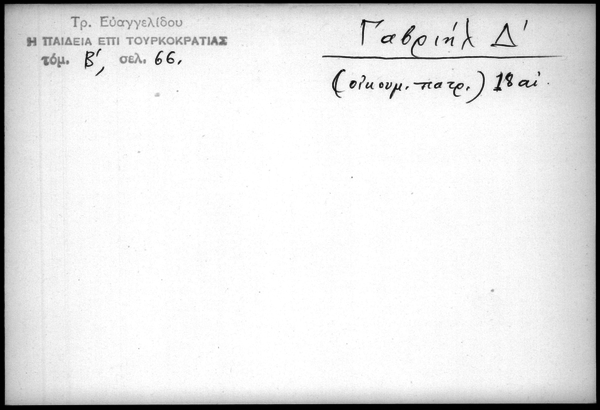 Τρ. Εὐαγγελίδου
Η ΠΑΙΔΕΙΑ ΕΠΙ ΤΟΥΡΚΟΚΡΑΤΙΑΣ
τόμ. Β', σελ. 66.
Γαβριήλ Δ'
(οἰκουμ. πατρ.) 18 αἰ.